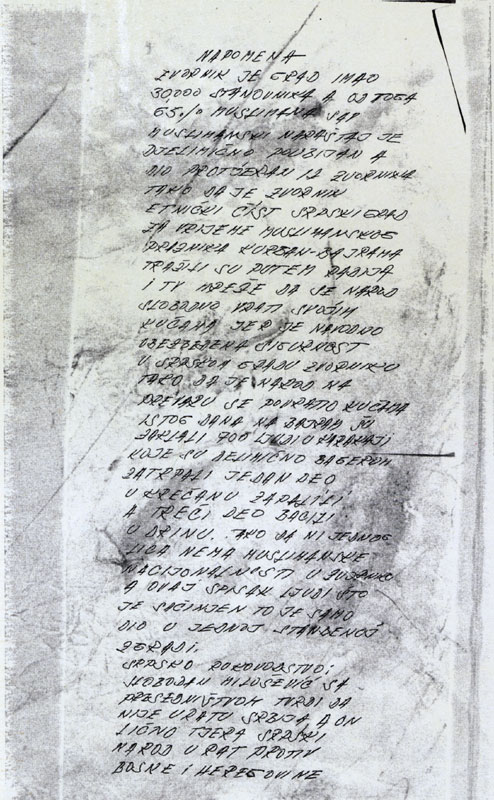 NAPOMENA
ZVORNIK JE GRAD IMAO
30000 STANOVNIKA A OD TOGA
65%
MUSLIMANA
MUSLIMANSKI NARAŠTAJ JE
DJELIMIČNO POUBIJAN A
DIO PROTJERAN IZ ZVORNIKA
TAKO DA JE ZVORNIK
ETNIČKI ČIST SRPSKI GRAD
ZA VRIJEME MUSLIMANSKOG
PRAZNIKA KURBAN-BAJRAMA
TRAŽILI SU PUTEM RADIJA
I TV MREŽE DA SE NAROD
SLOBODNO VRATI SVOJIM
KUĆAMA JER JE NAVODNO
OBEZBEĐENA SIGURNOST
U SRPSKOM GRADU ZVORNIKU
TAKO DA JE NAROD NA
PREVARU SE POVRATO KUĆAMA
ISTOG DANA NA BAJRAM SU
ZAKLALI 700 LJUDI U
KOJE SU DELIMIČNO BAGEROM
ZATRPALI JEDAN DEO
U KREČANU ZAPALILI
A TREĆI DEO BACILI
U DRINU. TAKO DA NI JEDNOG
LICA NEMA MUSLIMANSKE
NACIONALNOSTI U ZVORNIKU
A OVAJ SPISAK LJUDI ŠTO
JE SAČINJEN TO JE SAMO
DIO U JEDNOJ STANBENOJ
ZGRADI.
SRPSKO RUKOVODSTVO:
SLOBODAN MILOSEVIĆ SA
PRESEDNIŠTVOM TVRDI DA
NIJE U RATU SRBIJA A ON
LIČNO TJERA SRPSKI
NAROD U RAT PROTIV
BOSNE I HERCEGOVINE